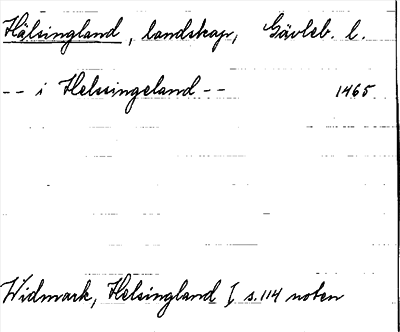 Hälsingland, landskap, Gävleb. l.
-- i Helsingeland -- 1465.
Widmark, Helsingland I s. 114 noten